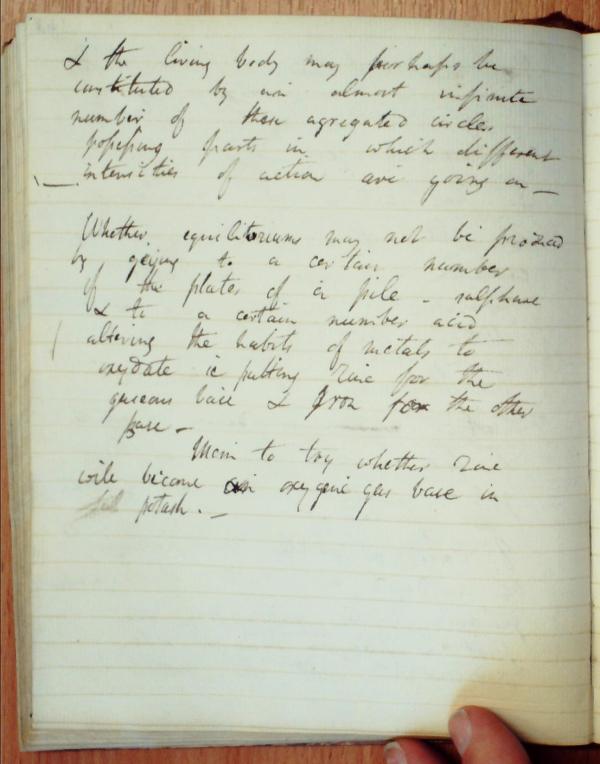 & the living body may perhaps be
constituted by an almost infinite
number of these agregated circles
possessing parts in which different
intensities of action are going on —
Whether equilibriums may not be produced
by giving to a certain number
of the plates of a pile - sulphure
& to a certain number acid
altering the habits of metals to
oxydate ie putting zinc for the
gaseous base & Iron for the other
base -
Mem to try whether zinc
will become an oxygene gas base in
potash. -